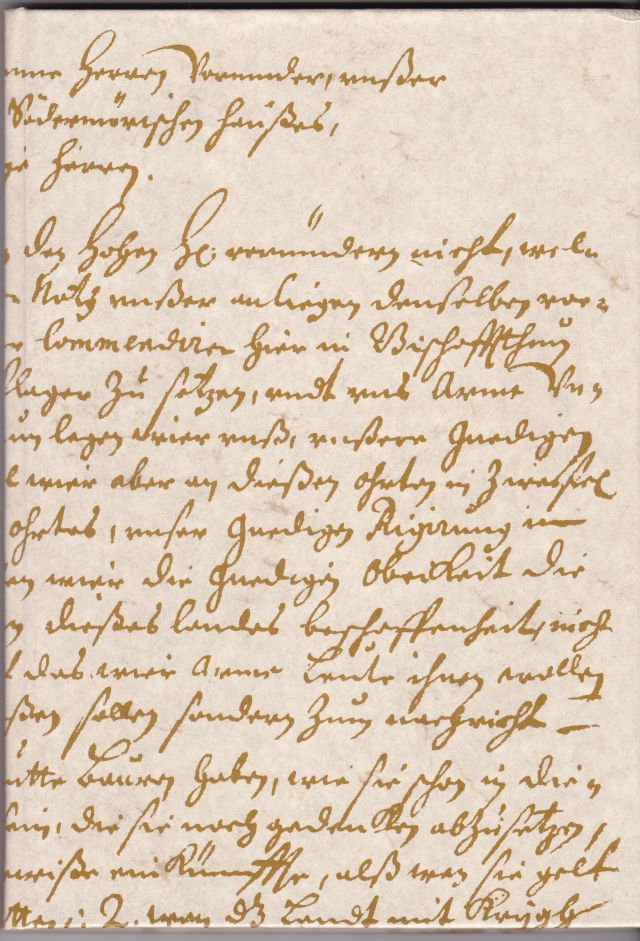 nnne Herren Vormünder, unßer
Södermörischen haußes,
ge Herren.
den Hohen H: vormündern nicht, weln
Noth unßer anliegen denselben vor
commendirer hier in Bischoffthum
lager zu setzen, undt uns Arme Un
un legen wier unß, unßere Gnedigen
wier aber an dießen ohrten in Zweiffel
ohrtes, unser Gnedigen Rigirung in
en wier die Gnedigen Oberkeit die
dießes landes beschaffenheit, nicht
das wier Arme Leute ihnen wollen
ßen sollen sondern zum nachricht
ütte Bauren haben, wie sie schon in die
ein, die sie noch gedencken abzusetzen,
weiße ein Künffte, alß wan sie gelt
tten: 2. wan dz Landt mit Krygh